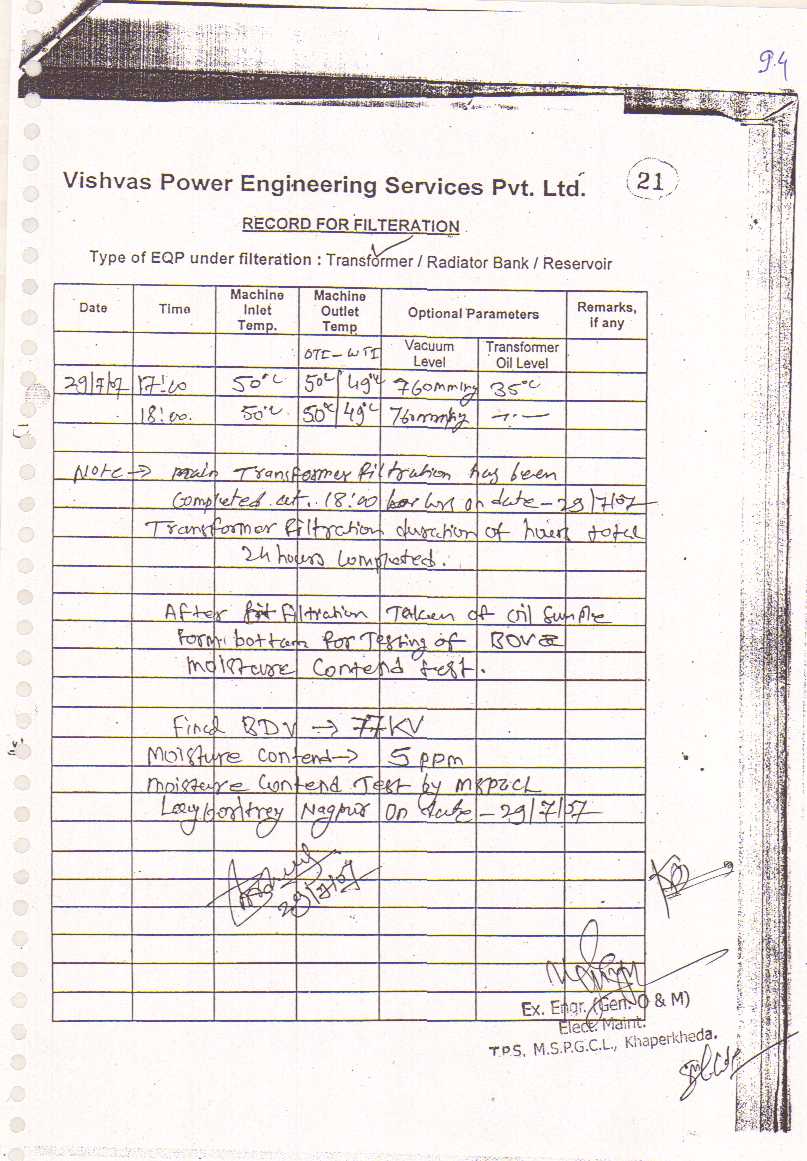 9.4
Vishvas Power Engineering Services Pvt. Ltd. 21
RECORD FOR FILTERATION
Type of EQP under filteration : Transformer / Radiator Bank / Reservoir
Date Time Machine Inlet Temp. Machine Outlet Temp Optional Parameters Remarks, if any
OTI - WTI Vacuum Level Transformer Oil Level
29/7/07 17:00 50°C 50°C/49°C 760mmHg 35°C
18:00. 50°C 50°C/49°C 760mmHg —〃—
Note → main Transformer filtration has been
Completed at. 18:00 hrs on date - 29/7/07
Transformer filtration duration of hours total
24 hours Completed.
After filtration Taken of oil Sample
form bottom for Testing of BDV &
moisture Contend test.
Final BDV → 77KV
Moisture Contend → 5 ppm
moisture Contend Test by
Nagpur on date - 29/7/07
29/7/07
Ex. Engr. (Gen. O & M)
Elect. Maint.
T.P.S. M.S.P.G.C.L., Khaperkheda.